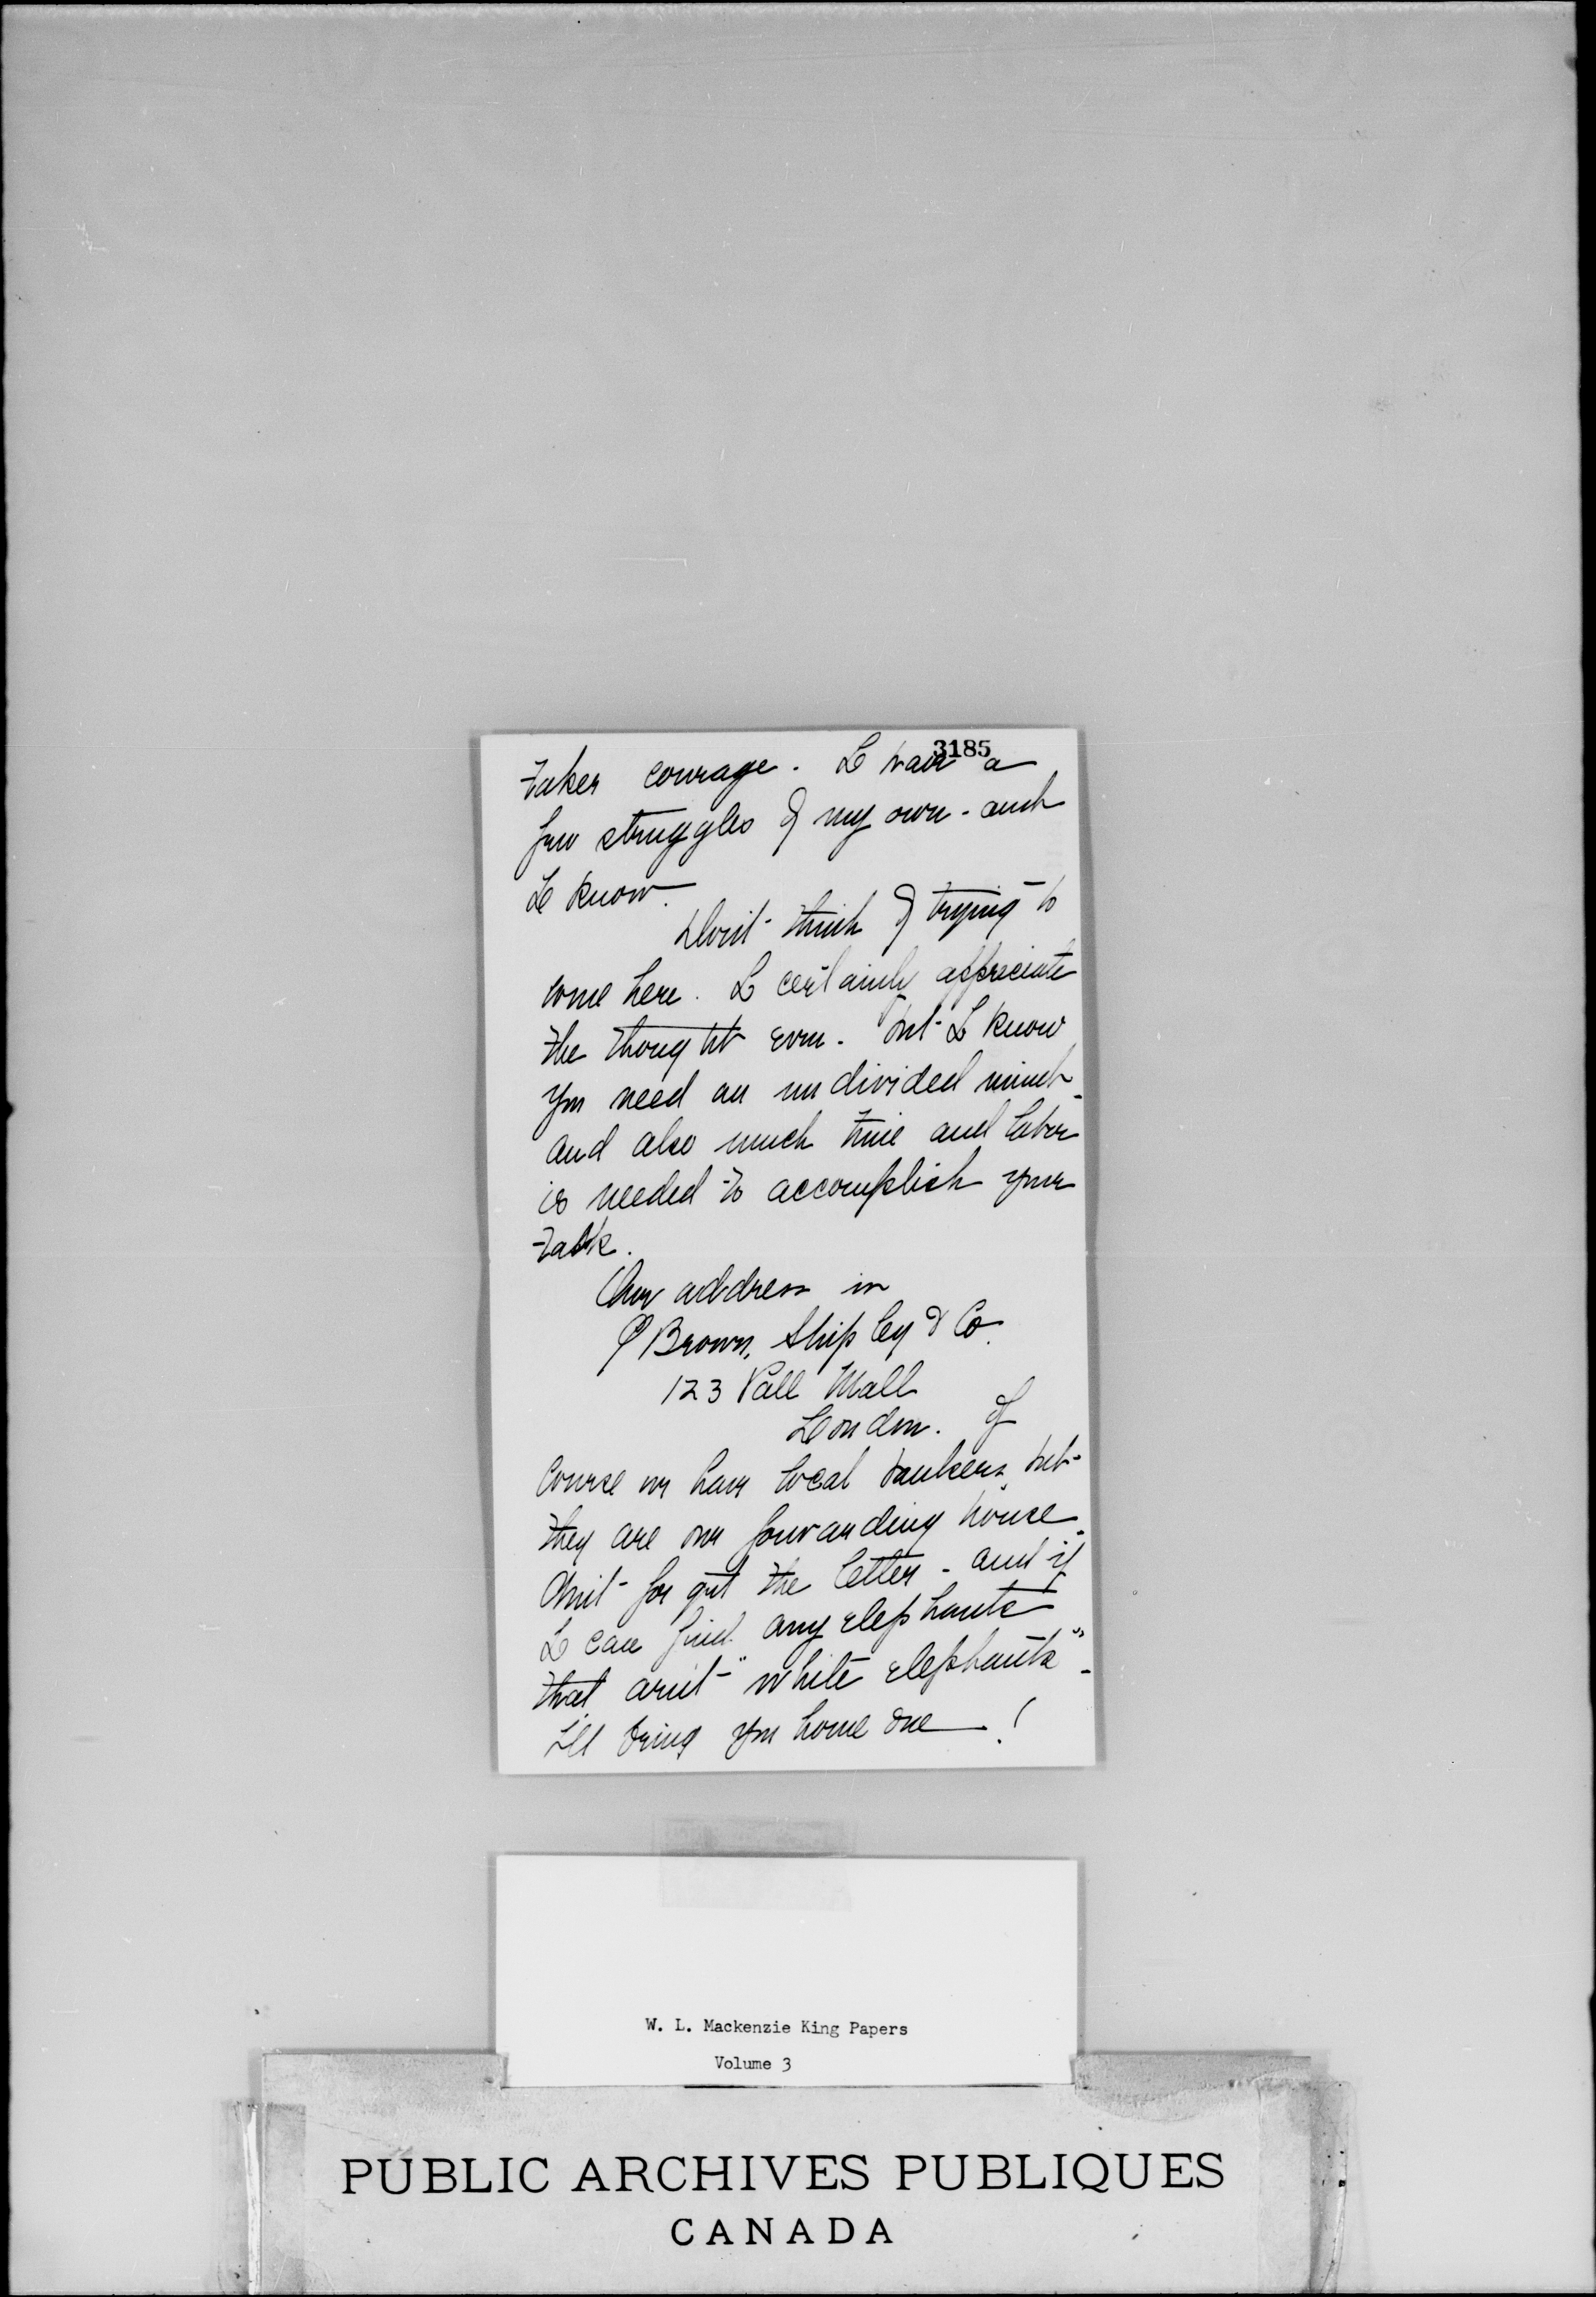 3185
takes courage. I have a
few struggles of my own - and
I know.
Don't think of trying to
come here. I certainly appreciate
the thought even. but I know
you need an undivided mind -
and also much time and labor
is needed to accomplish your
task.
Our address is
℅ Brown, Shipley & Co.
123 Pall Mall
London. Of
course we have local bankers but
they are our forwarding house.
Don't forget the letter - and if
I can find any elephants
that aren't "white elephants" -
I'll bring you home one !
W. L. Mackenzie King Papers
Volume 3
PUBLIC ARCHIVES PUBLIQUES
CANADA